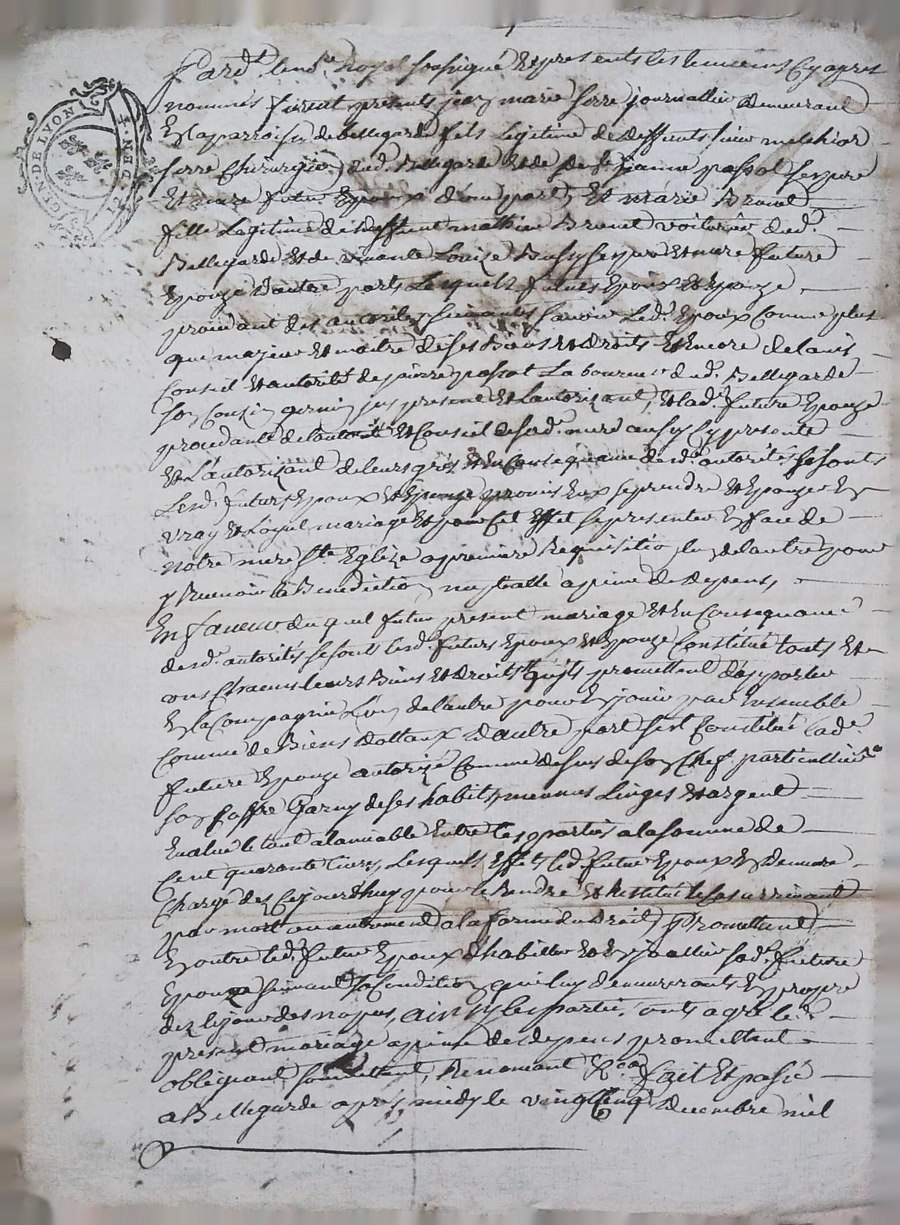 GEN. DE LYON
Pard.t le no.re Royal soussigné Et presents les temoins Cy apres
nommés furent presents jean marie serre journallier Demeurant
En la parroisse de bellegarde fils Legitime de deffunts sieur melchior
serre Chirurgien dud. Bellegarde Et de d.e jeanne passot ses pere
Et mere futur Epoux d'une part, Et Marie Brunel
fille Legitime de deffunt mathieu Brunel voiturier dud.
Bellegarde Et de vivante Louize Bussy ses pere Et mere future
Epouze d'autre part, Lesquels futurs Epoux Et Epouze
procedant des autorités suivantes savoir Led. Epoux Comme plus
que majeur Et maitre de ses Biens Et droits Et Encore de lavis
Conseil Et autorité de pierre passot Laboureur dud. Bellegarde
son Cousin germain present Et Lautorizant, Et lad. future Epouze
procedante de lautorité Et Conseil de sad. mere aussy Cy presente
Et Lautorizant de leurs grés Et En Consequance desd. autorités se sont
Lesd. futurs Epoux Et Epouze promis Eux se prendre Et Epouzer En
vray Et Loyal mariage Et pour Cet Effet se presenter En face de
notre mere s.te Eglize a premiere Requisition lun de lautre pour
y Recevoir la Benediction nuptialle a peine de depens,
En faveur du quel futur present mariage Et En Consequance
desd. autorités se sont lesd. futurs Epoux Et Epouze Constitué touts Et
uns Chacuns leurs Biens Et droits qu'ils promettent d'apporter
En la Compagnie L'un de lautre pour En jouir par Ensemble
Comme de Biens dottaux d'autre part s'est Constitué lad.
future Epouze autorizé Comme dessus de son Chef particullier
son Coffre Garny de ses habits, menus Linges Et argent
Evalué le tout alamiable Entre les parties a la somme de
Cent quarante livres, Lesquels Effets led. futur Epoux En demeure
Chargé dez Cejourdhuy pour le Rendre Et Restituer le Cas arrivant
par mort ou autrement a la forme du droit, Promettant
En outre led. futur Epoux d'habiller Et En joallier sad. future
Epouze suivant sa Condition qui luy demeurerants En propre
dez le jour des nopces, ainsy les parties onts agréé le
present mariage a peine de depens promettant
obligeant, soumettant, Renonceant &.ca fait Et passé
a Bellegarde apres midy le vingt Cinq decembre mil